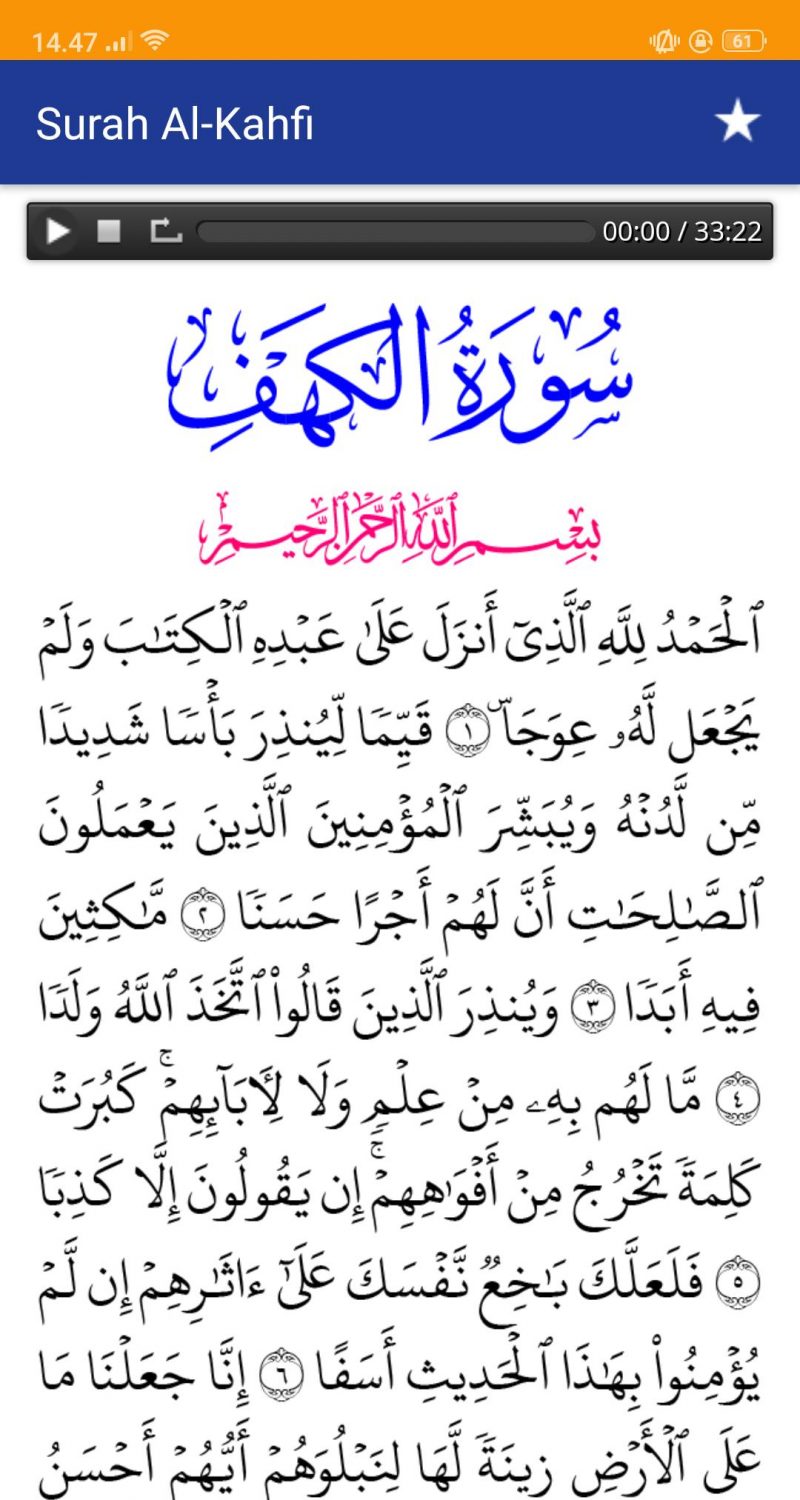 14.47
61
Surah Al-Kahfi
00:00 / 33:22
سُورَةُ الكَهْفِ
بِسْمِ اللَّهِ الرَّحْمَٰنِ الرَّحِيمِ
ٱلْحَمْدُ لِلَّهِ ٱلَّذِىٓ أَنزَلَ عَلَىٰ عَبْدِهِ ٱلْكِتَـٰبَ وَلَمْ
يَجْعَل لَّهُۥ عِوَجَاۜ ۝١ قَيِّمًا لِّيُنذِرَ بَأْسًا شَدِيدًا
مِّن لَّدُنْهُ وَيُبَشِّرَ ٱلْمُؤْمِنِينَ ٱلَّذِينَ يَعْمَلُونَ
ٱلصَّـٰلِحَـٰتِ أَنَّ لَهُمْ أَجْرًا حَسَنًا ۝٢ مَّـٰكِثِينَ
فِيهِ أَبَدًا ۝٣ وَيُنذِرَ ٱلَّذِينَ قَالُوا۟ ٱتَّخَذَ ٱللَّهُ وَلَدًا
۝٤ مَّا لَهُم بِهِۦ مِنْ عِلْمٍ وَلَا لِـَٔابَآئِهِمْ ۚ كَبُرَتْ
كَلِمَةً تَخْرُجُ مِنْ أَفْوَٰهِهِمْ ۚ إِن يَقُولُونَ إِلَّا كَذِبًا
۝٥ فَلَعَلَّكَ بَـٰخِعٌ نَّفْسَكَ عَلَىٰٓ ءَاثَـٰرِهِمْ إِن لَّمْ
يُؤْمِنُوا۟ بِهَـٰذَا ٱلْحَدِيثِ أَسَفًا ۝٦ إِنَّا جَعَلْنَا مَا
عَلَى ٱلْأَرْضِ زِينَةً لَّهَا لِنَبْلُوَهُمْ أَيُّهُمْ أَحْسَنُ